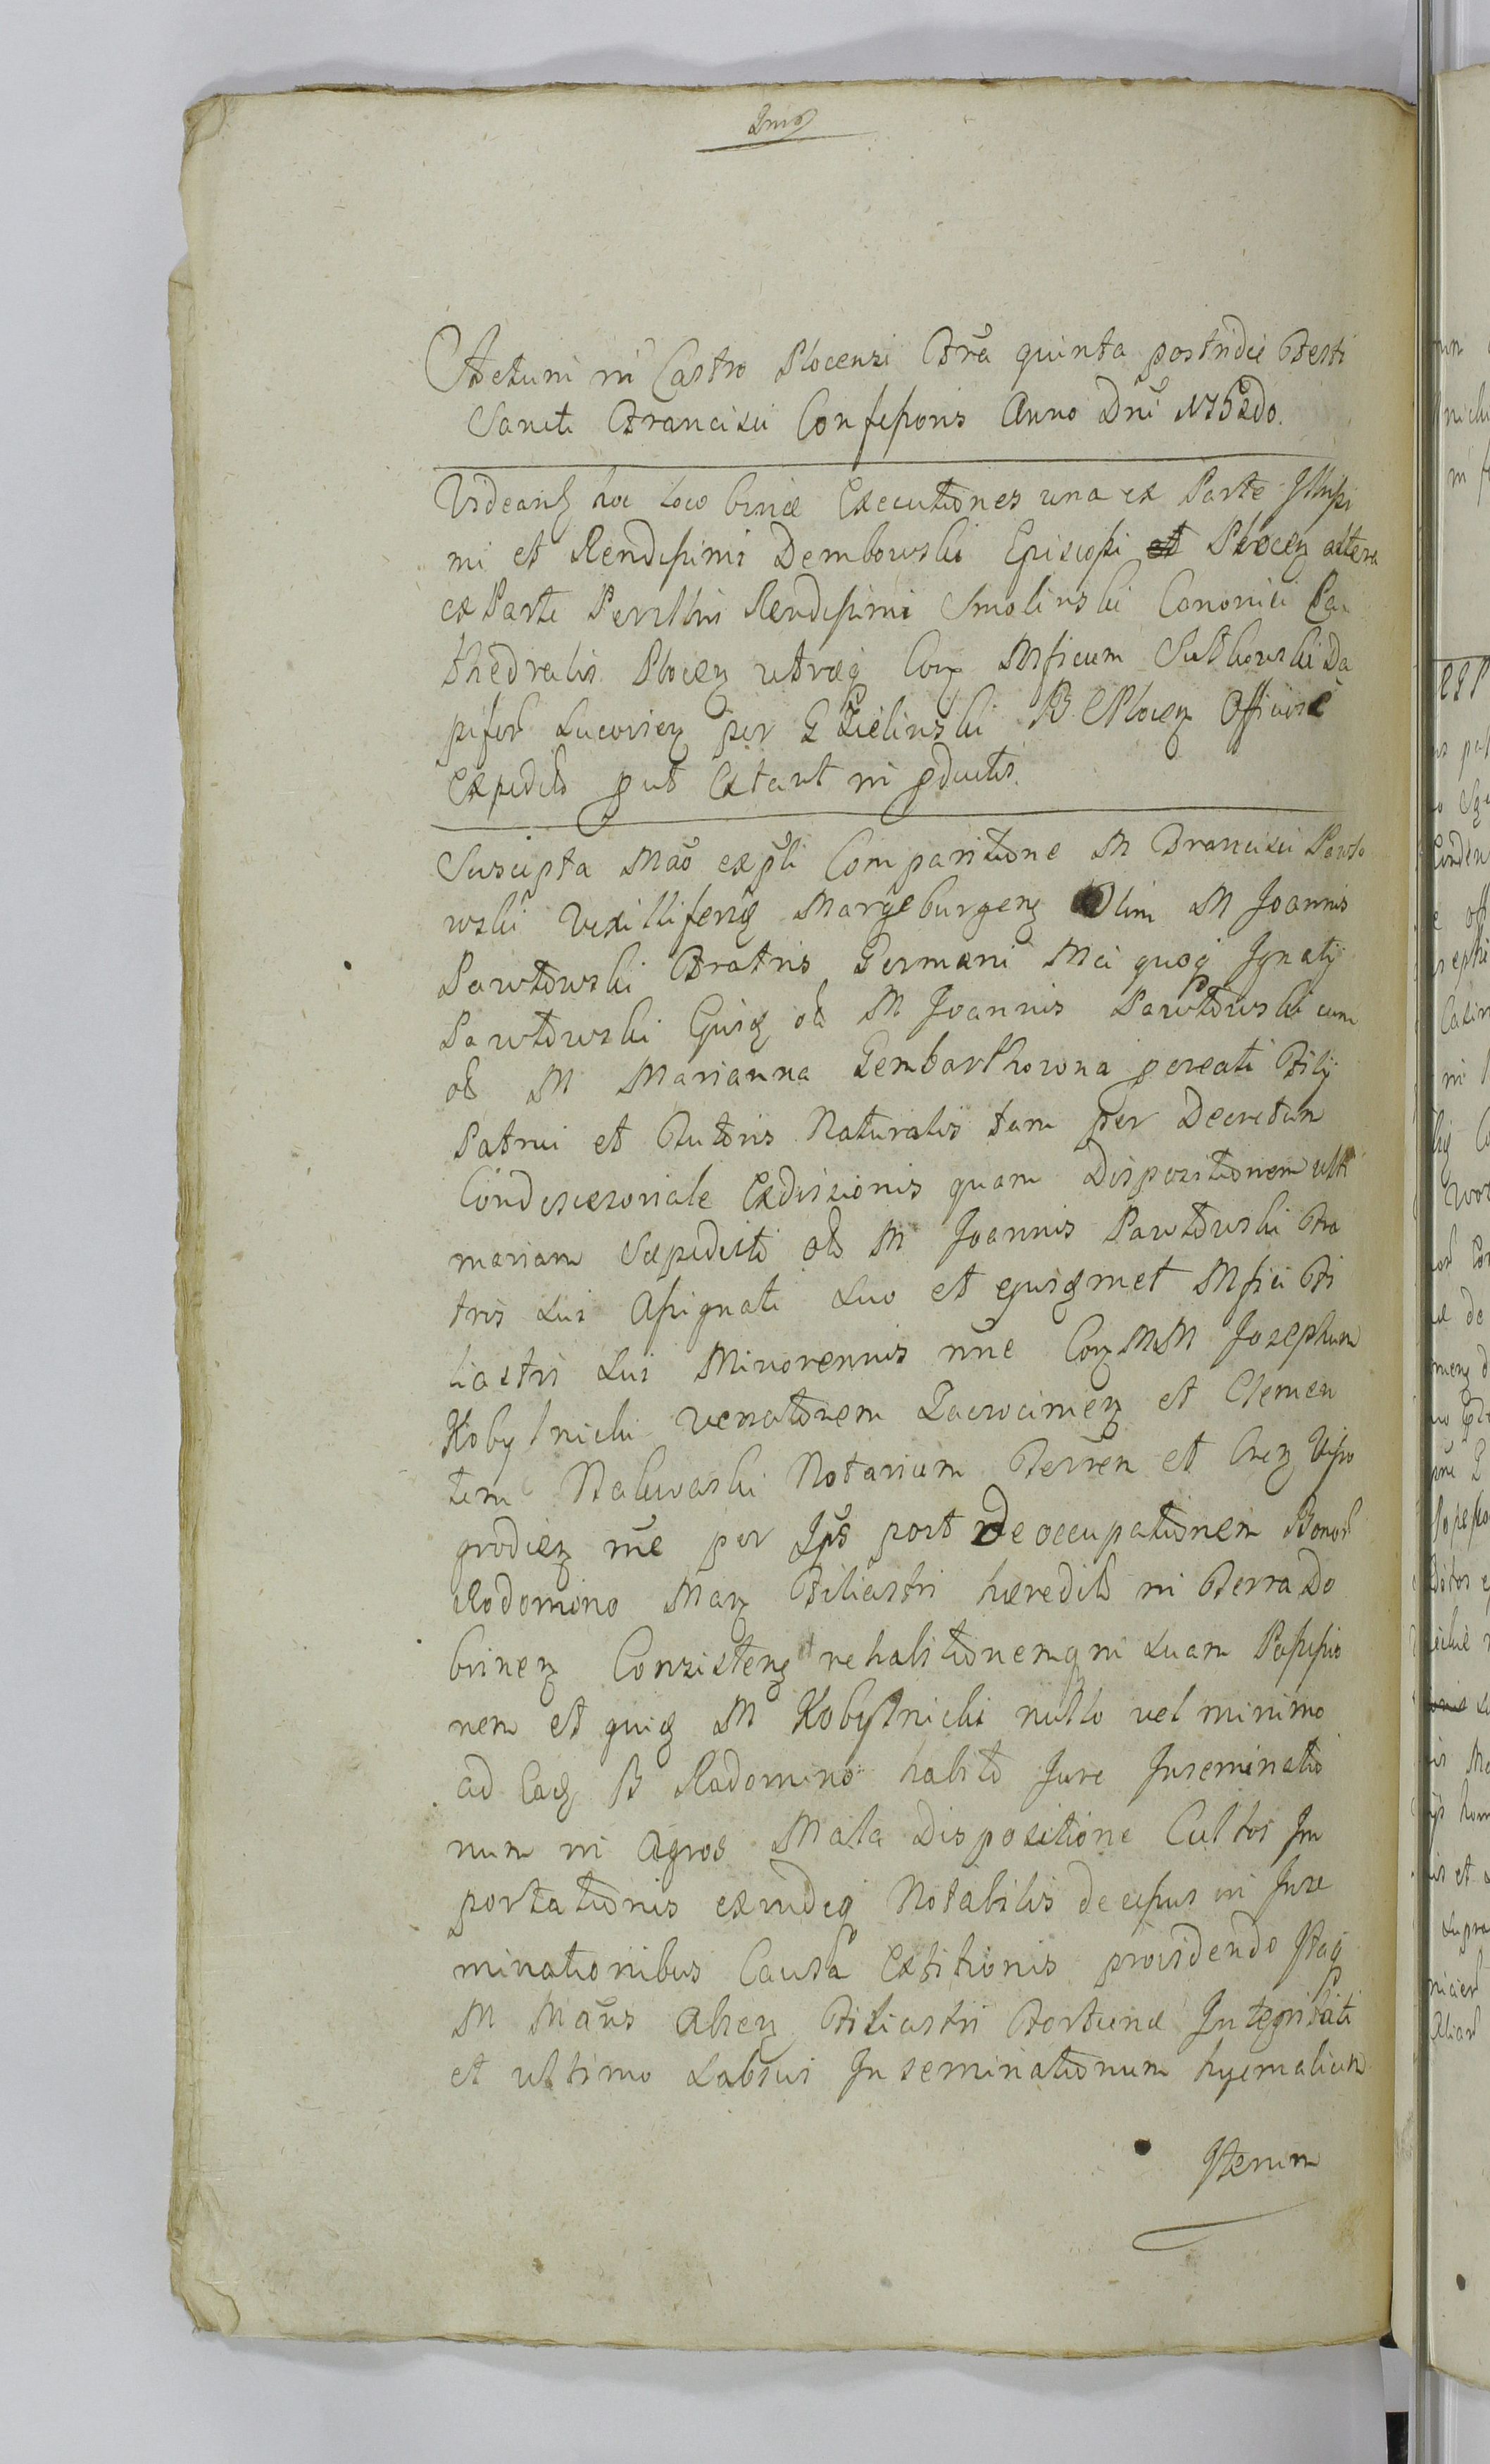 Actum in Castro Plocensi Fra quinta postridie Festi
Sancti Francisci Confessoris Anno Dni 1752do.
Videantz hoc loco binæ Executiones una ex Parte Illussi
mi et Rendissimi Dembowski Episcopi et Plocenz altera
ex Parte Perillris Rendissimi Smolinski Canonici Ca
thedralis Plocenz utraeq Conz Mficum Sutkowski Da
piferd Lucoriez per G Zielinski B. C. Plocenz Officiose
Expedits put Extant in pductis.
Suscepta Mao expti Comparitione M Francisci Pawło
wski Vexilliferiz Margeburgenz Olim M Joannis
Pawłowski Fratris Germani Mci quoq Ignatij
Pawłowski Ejusz od M Joannis Pawłowski cum
od M Marianna Gembarthowna pcreati Filij
Patrui et Tutoris Naturalis tam per Decretum
Condescensoriale Exdivisionis quam Dispositionem ulti
mariam Expediti od M Joannis Pawłowski Fra
tris sui Assignati suo et ejuszmet Mfici Fi
liastri sui Minorennis nne Conz MM Josephum
Kobylnicki Venatorem Zacrocimenz et Clemen
tem Nakwaski Notarium Terren et Cnez Visso
grodienz nne per Ips post Deoccupationem Bonord
Rodomino Manz Filiastri hæredits in Terra Do
brinenz Consistenz et rehabitionemq in suam Possessio
nem et quiz M Kobylnicki nullo vel minimo
ad Eadz B Radomino habito Jure Inseminatio
num in Agros Mala Dispositione Cultos Im
portationis exindeq Notabilis decessus in Inse
minationibus Causa Exstitionis providendo Itaq
M Maus Absenz Filiastri Fortunæ Integritati
et ultimo Labsui Inseminationum hyemalium
Iterum